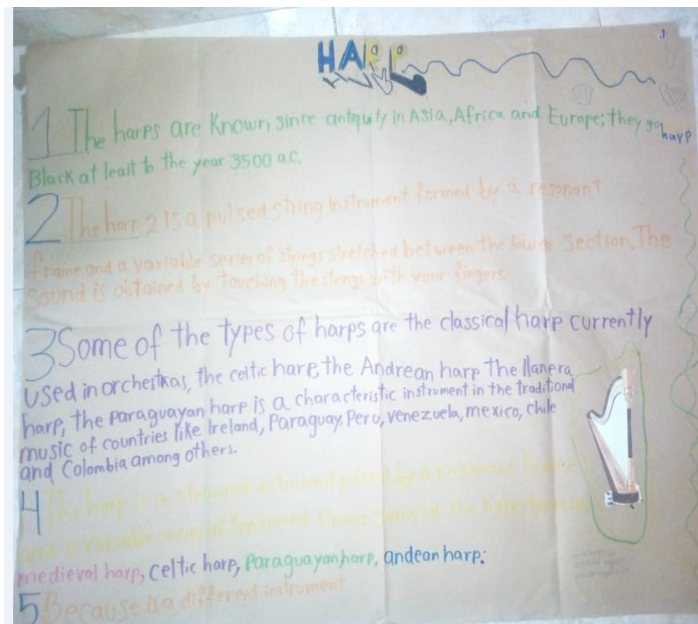 HARP
1 The harps are Known since antiquity in Asia, Africa and Europe; they go
harp
Black at least to the year 3500 a.c.
2 The harp 2 is a pulsed string instrument formed by a resonant
frame and a variable series of strings stretched between the lower section. The
Sound is obtained by touching the strings with your fingers.
3 Some of the types of harps are the classical harp currently
used in orchestkas, the celtic harp, the Andrean harp The llanera
harp, the paraguayan harp is a characteristic instrument in the traditional
music of countries like Ireland, Paraguay, Peru, venezuela, mexico, chile
and Colombia among others.
4 The harp is a stringed instrument pulsed by a resonant frame
and a variable series of strings of the harp
medieval harp, celtic harp, Paraguayan harp, andean harp:
5 Because is a different instrument